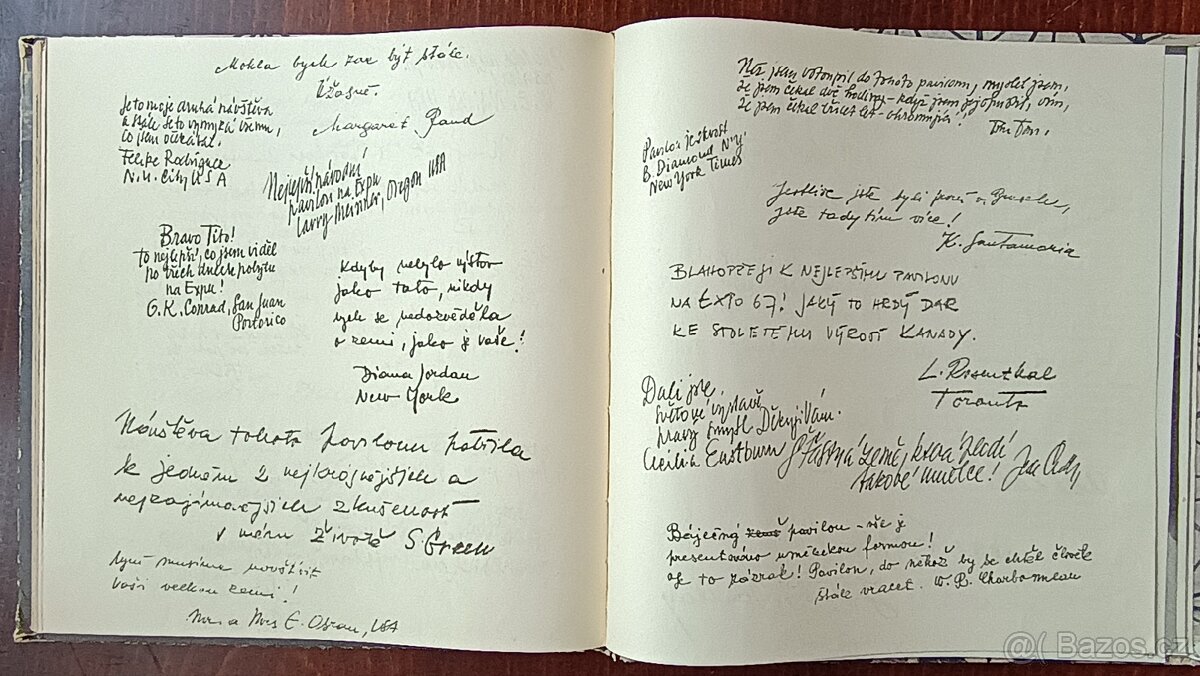 Mohla bych zde být stále.
Úžasné.
Margaret Rand
Je to moje druhá návštěva
a stále se to vymyká všemu,
co jsem očekával.
Felipe Rodriguez
N.Y. City USA
Nejlepší národní
pavilon na Expu
Larry Meisner, Oregon USA
Bravo Tito!
to nejlepší, co jsem viděl
po třech dnech pobytu
na Expu!
G.K. Conrad, San Juan
Portorico
Kdyby nebylo výstav
jako tato, nikdy
bych se nedozvěděla
o zemi, jako je vaše!
Diana Jordan
New York
Návštěva tohoto pavilonu patřila
k jedněm z nejkrásnějších a
nejzajímavějších zkušeností
v mém životě S. Green
Nyní musíme navštívit
vaši velkou zemi!
Mr. a Mrs E. USA
Než jsem vstoupil do tohoto pavilonu, myslel jsem,
že jsem čekal dvě hodiny - když jsem jej opustil, vím,
že jsem čekal třicet let - ohromující!
Pavilon je skvost
B. Diamond N.Y.
New York Times
Jestliže jste byli první v Bruselu,
jste tady tím více!
K. Santamaria
BLAHOPŘEJI K NEJLEPŠÍMU PAVILONU
NA EXPO 67! JAKÝ TO HRDÝ DAR
KE STOLETÉMU VÝROČÍ KANADY.
L. Rosenthal
Toronto
Dali jste
světové výstavě
pravý smysl. Děkuji Vám.
Cecilia Eastburn
Šťastná země, která zrodí
takové umělce!
Báječný země pavilon - vše je
presentováno uměleckou formou!
Je to zázrak! Pavilon, do něhož by se chtěl člověk
stále vracet. W. B.
@( Bazos.cz